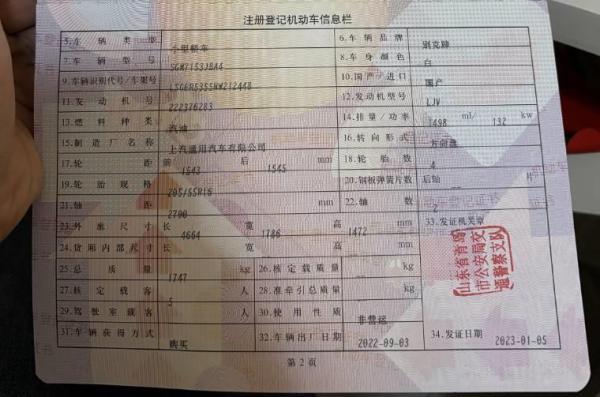 注册登记机动车信息栏
5.车辆类型 小型轿车 6.车辆品牌 别克牌
7.车辆型号 SGM7153JBA4 8.车身颜色 白
9.车辆识别代号/车架号 10.国产/进口 国产
11.发动机号 222376283 12.发动机型号 LJV
13.燃料种类 汽油 14.排量/功率 1498 ml/ 132 kw
15.制造厂名称 上汽通用汽车有限公司 16.转向形式 方向盘
17.轮距 前 1543 后 1545 mm 18.轮胎数 4
19.轮胎规格 205/55R16 20.钢板弹簧片数 后轴 -- 片
21.轴距 2700 mm 22.轴数 2
23.外廓尺寸 长 4664 宽 1786 高 1472 mm 33.发证机关章
24.货厢内部尺寸 长 宽 高 mm
25.总质量 1747 kg 26.核定载质量 -- kg
27.核定载客 5 人 28.准牵引总质量 -- kg
29.驾驶室载客 -- 人 30.使用性质 非营运
31.车辆获得方式 购买 32.车辆出厂日期 2022-09-03 34.发证日期 2023-01-05
山东省青岛
市公安局交
通警察支队
第2页